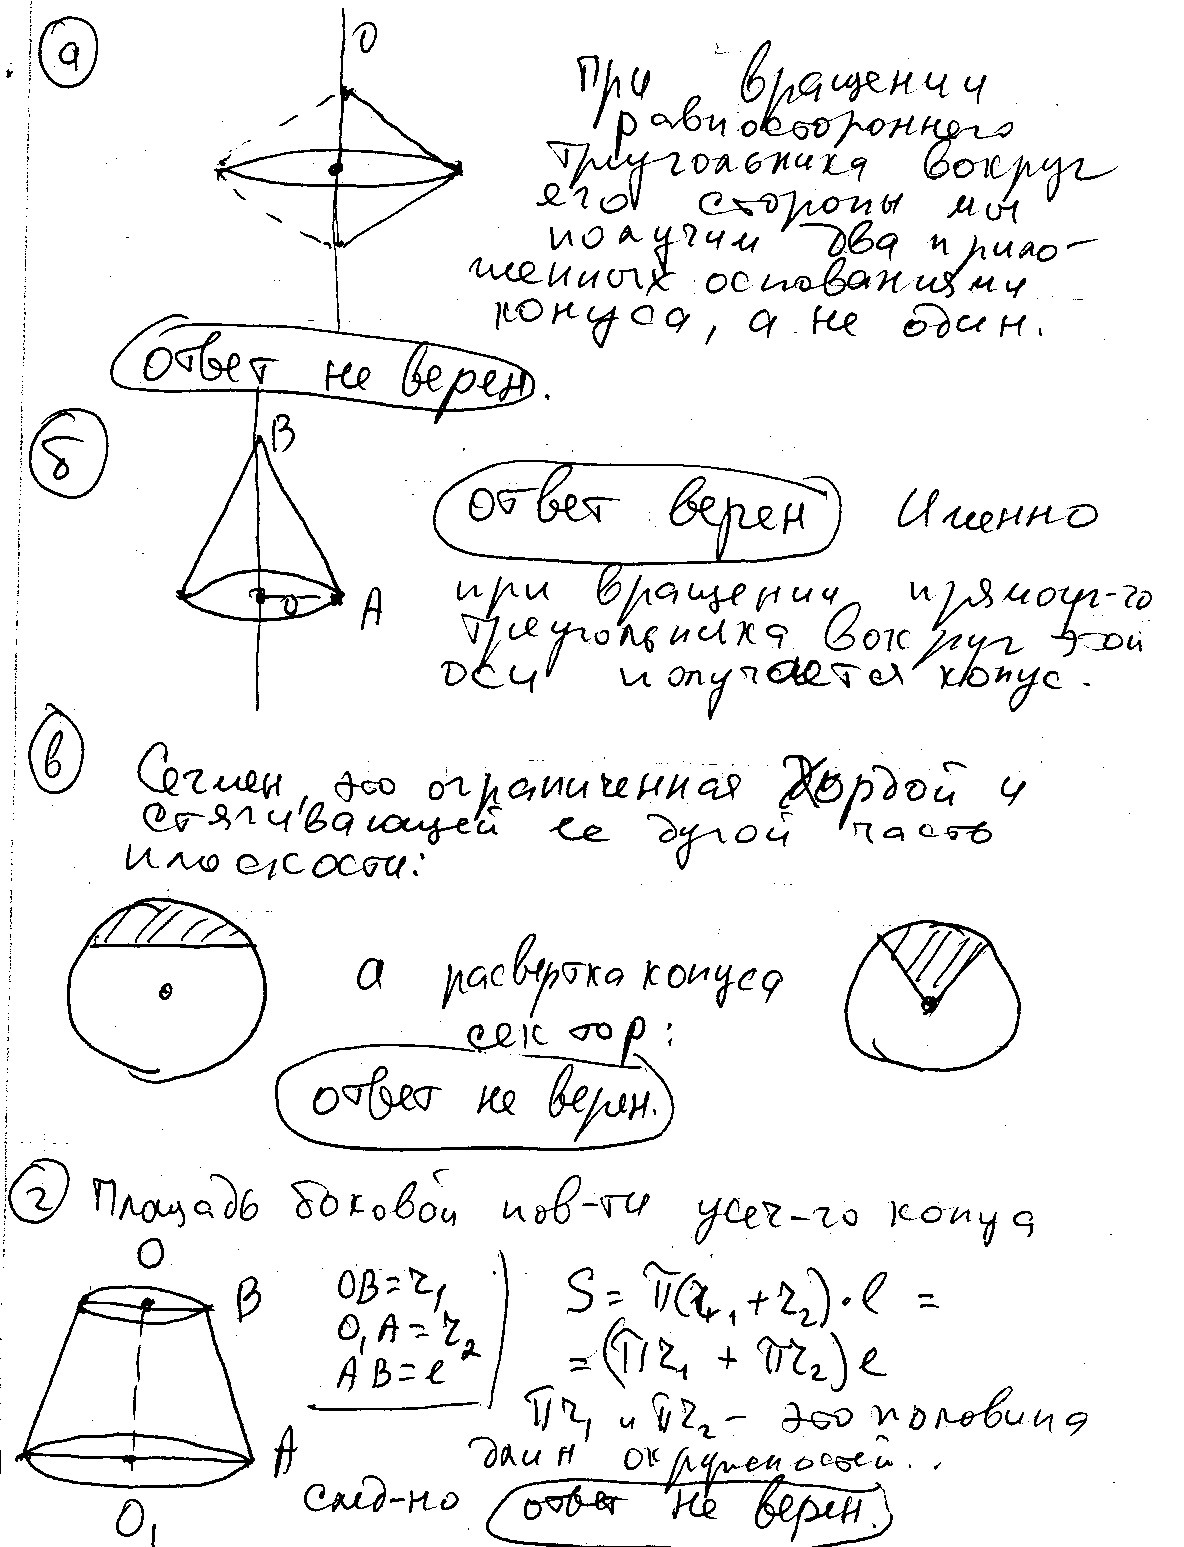 а
О
При вращении
равностороннего
треугольника вокруг
его стороны мы
получим два прило-
женных основаниями
конуса, а не один.
ответ не верен.
б
В
А
О
ответ верен Именно
при вращении прямоуг-го
треугольника вокруг этой
оси получается конус.
в
Сегмен, это ограниченная хордой и
стягивающей ее дугой часть
плоскости:
а развертка конуса
сектор:
ответ не верен.
г Площадь боковой пов-ти усеч-го конуа
О
В
А
О₁
OB = r₁
O₁A = r₂
AB = l
S = π(r₁ + r₂) · l =
= (πr₁ + πr₂) l
πr₁ и πr₂ - это половина
длин окружностей..
след-но ответ не верен.